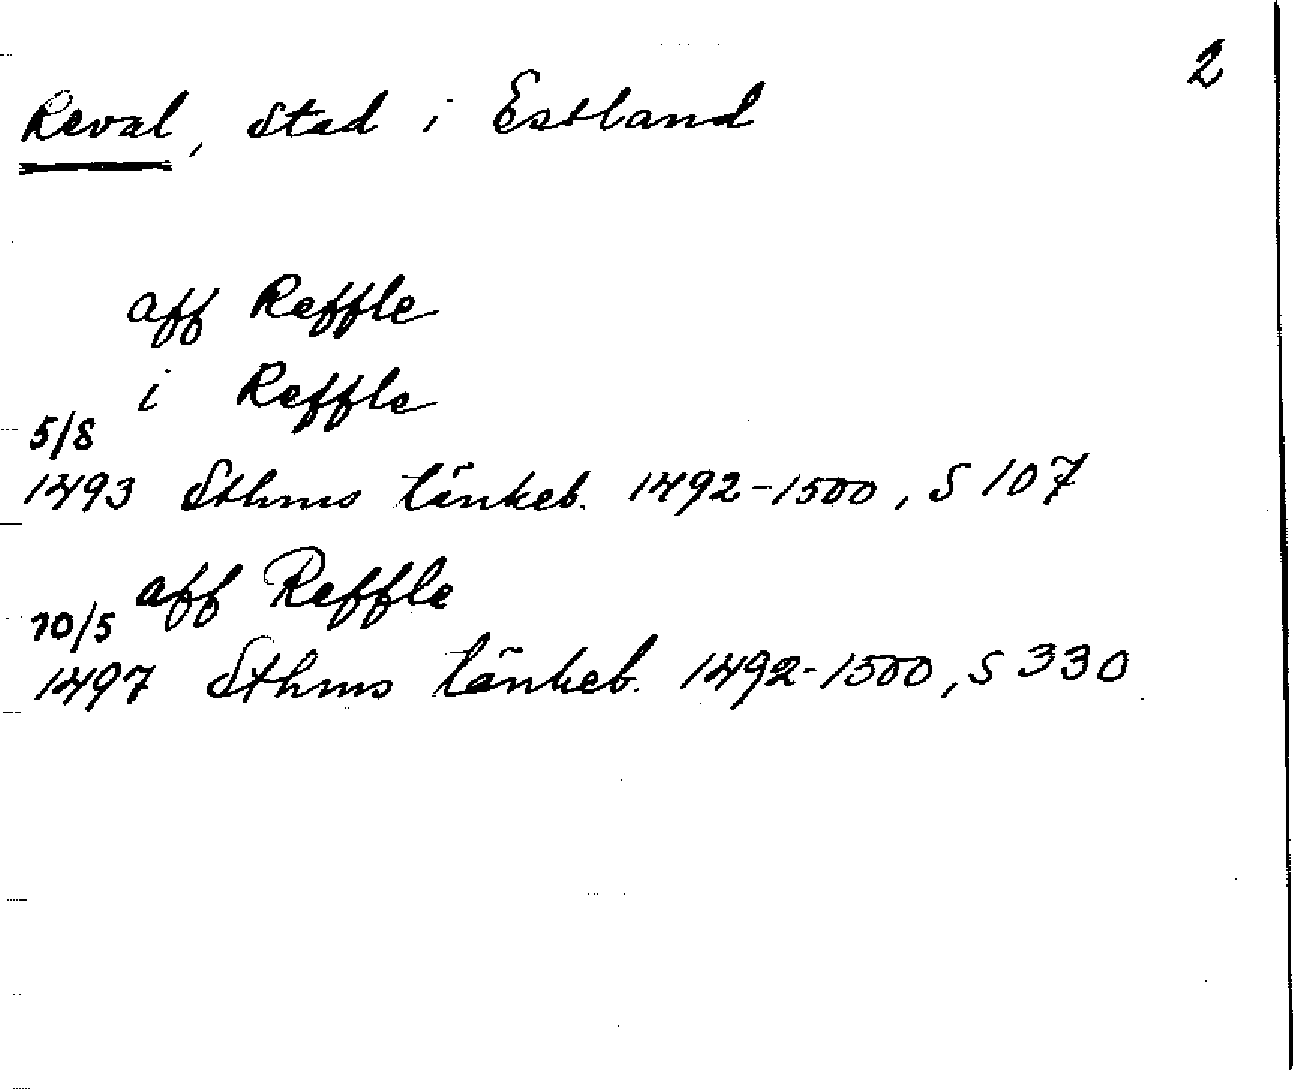 2
Reval, stad i Estland
aff Reffle
i Reffle
5/8
1493 Sthms tänkeb. 1492-1500, S 107
aff Reffle
10/5
1497 Sthms tänkeb. 1492-1500, S 330